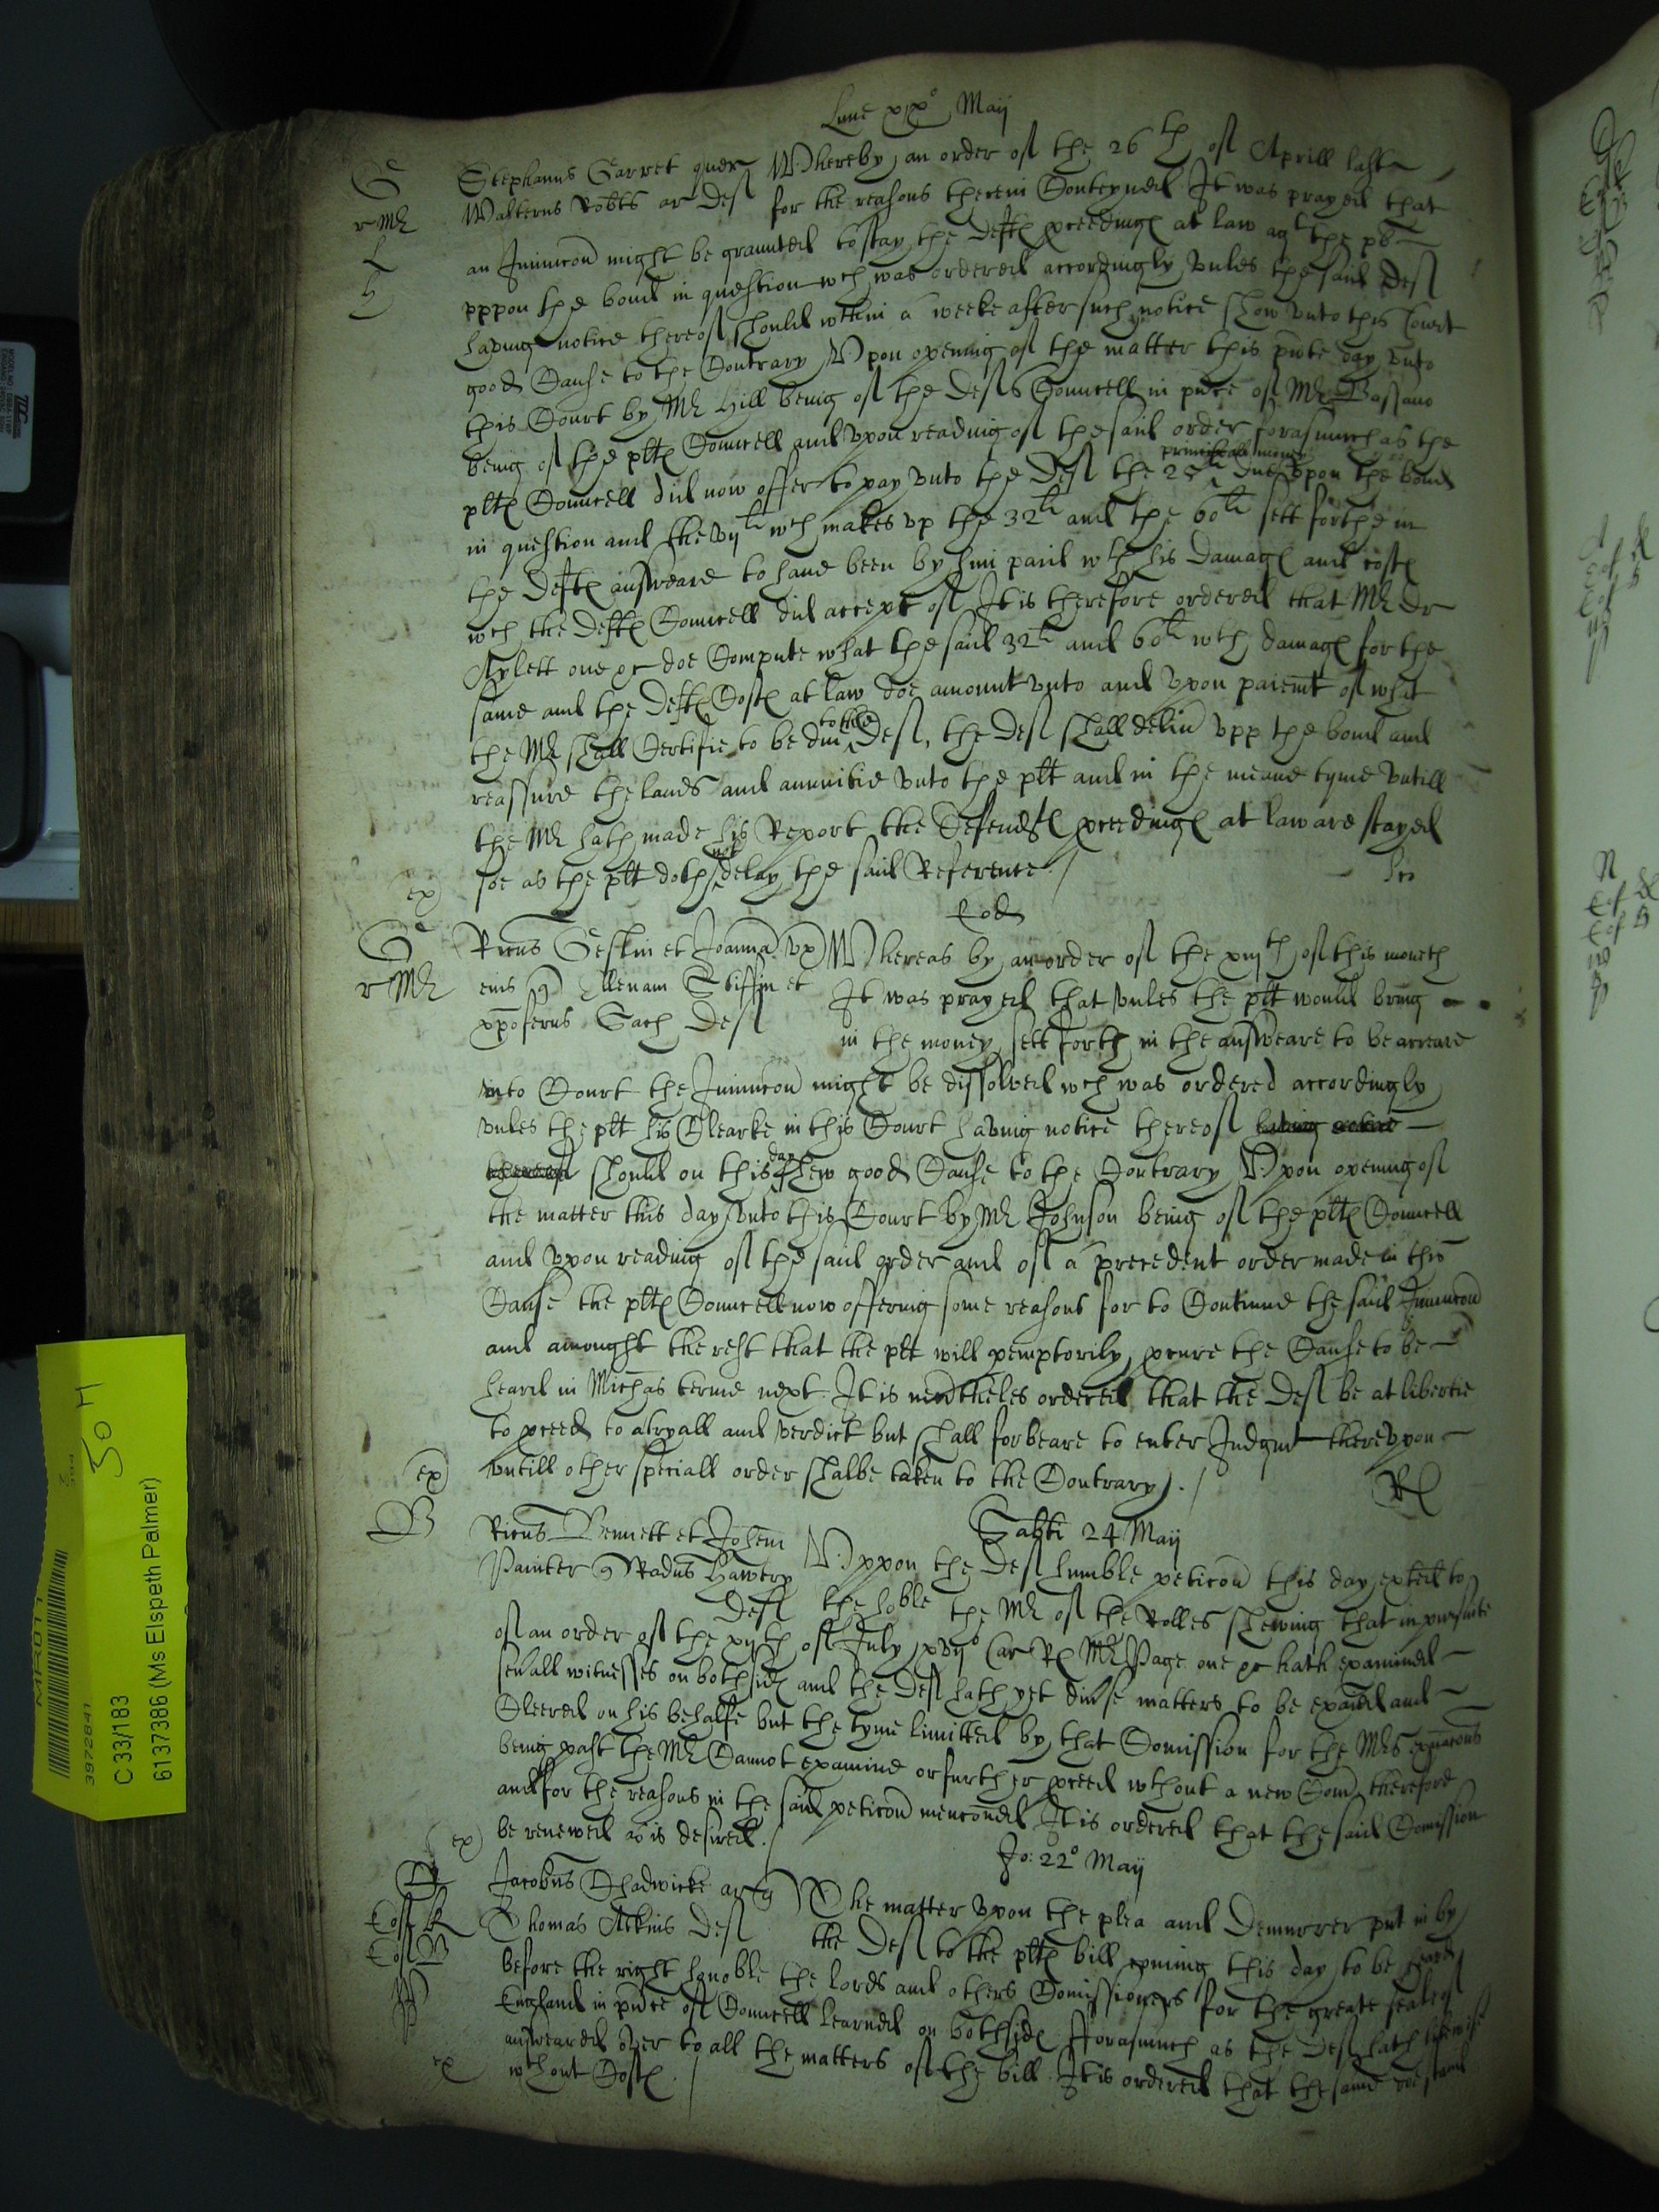 Lune xix° Maij
G Stephanus Garret quer Whereby an order of the 26th of Aprill last
r Mr Walterus Robts ar Def for the reasons therein Conteyned It was prayed that
L an Iniunccon might be graunted to stay the Defts pceedings at law agt the plt
H vppon the bond in question wch was ordered accordingly vnles the said Def
having notice thereof should wthin a weeke after such notice show vnto this Court
good Cause to the Contrary Vpon opening of the matter this pnte day vnto
this Court by Mr Hill being of the Defts Councell in pnce of Mr Bassano
being of the plts Councell and vpon reading of the said order forasmuch as the
principall money
plts Councell did now offer to pay vnto the Def the 25li due vpon the bond
in question and the vijli wch makes vp the 32li and the 60li sett forthe in
the Defts answeare to have been by him paid wth his Damags and costs
wch the Defts Councell did accept of It is therefore ordered that Mr Dr
Aylett one &c doe Compute what the said 32li and 60li wth damags for the
same and the Defts Costs at law doe amount vnto and vpon paiemt of what
the Mr shall Certifie to be due to the Def, the Def shall deliu vpp the bond and
reassure the lands and annuitie vnto the plt and in the meane tyme vntill
the Mr hath made his Report the Defendts pceedings at law are stayed
ex soe as the plt doth not delay the said Reference.
Eod
G Ricus Geslin et Joanna vx Whereas by an order of the xiijth of this moneth
r Mr eius q Ellenam Stiffin et It was prayed that vnles the plt would bring
xpoferus Gach Def in the money sett forth in the answeare to be arreare
into Court the Iniunccon might be dissolved wch was ordered accordingly
vnles the plt his Clearke in this Court having notice thereof having notice
thereof should on this day shew good Cause to the Contrary Vpon opening of
the matter this day vnto this Court by Mr Johnson being of the plts Councell
and vpon reading of the said order and of a precedent order made in this
Cause the plts Councell now offering some reasons for to Continue the said Iniunccon
and amongst the rest that the plt will pemptorily pcure the Cause to be
heard in Michas terme next. It is nevtheles ordered that the Def be at libertie
to pceed to a tryall and verdict but shall forbeare to enter Iudgmt therevpon
ex vntill other speciall order shalbe taken to the Contrary.
Sabti 24 Maij
B Ricus Bennett et Johem
Painter q Radus Hawtry Vppon the Def humble peticon this day exhted to
Def the hoble the Mr of the Rolles shewing that in pursuite
of an order of the xijth of July xvij° Car Rs Mr Page one &c hath examined
seuall witnesses on both sids and the Def hath yet diuse matters to be examd and
Cleered on his behalfe but the tyme limitted by that Comission for the Mrs exiacons
being past the Mr Cannot examine or further pceed wthout a new Com therefore
and for the reasons in the said peticon menconed It is ordered that the said Comission
ex be renewed as is desired.
Jo: 22° Maij
Jacobus Chadwicke ar q The matter vpon the plea and Demurrer put in by
Thomas Atkins Def the Def to the plts bill coming this day to be heard
before the right honoble the lords and others Comissioners for the greate seale of
England in pnce of Councell learned on both sids Forasmuch as the Def hath likewise
answeared over to all the matters of the bill It is ordered that the same doe stand
ex wthout Costs.
MR011
3972841
C 33/183
6137386 (Ms Elspeth Palmer)
50 H